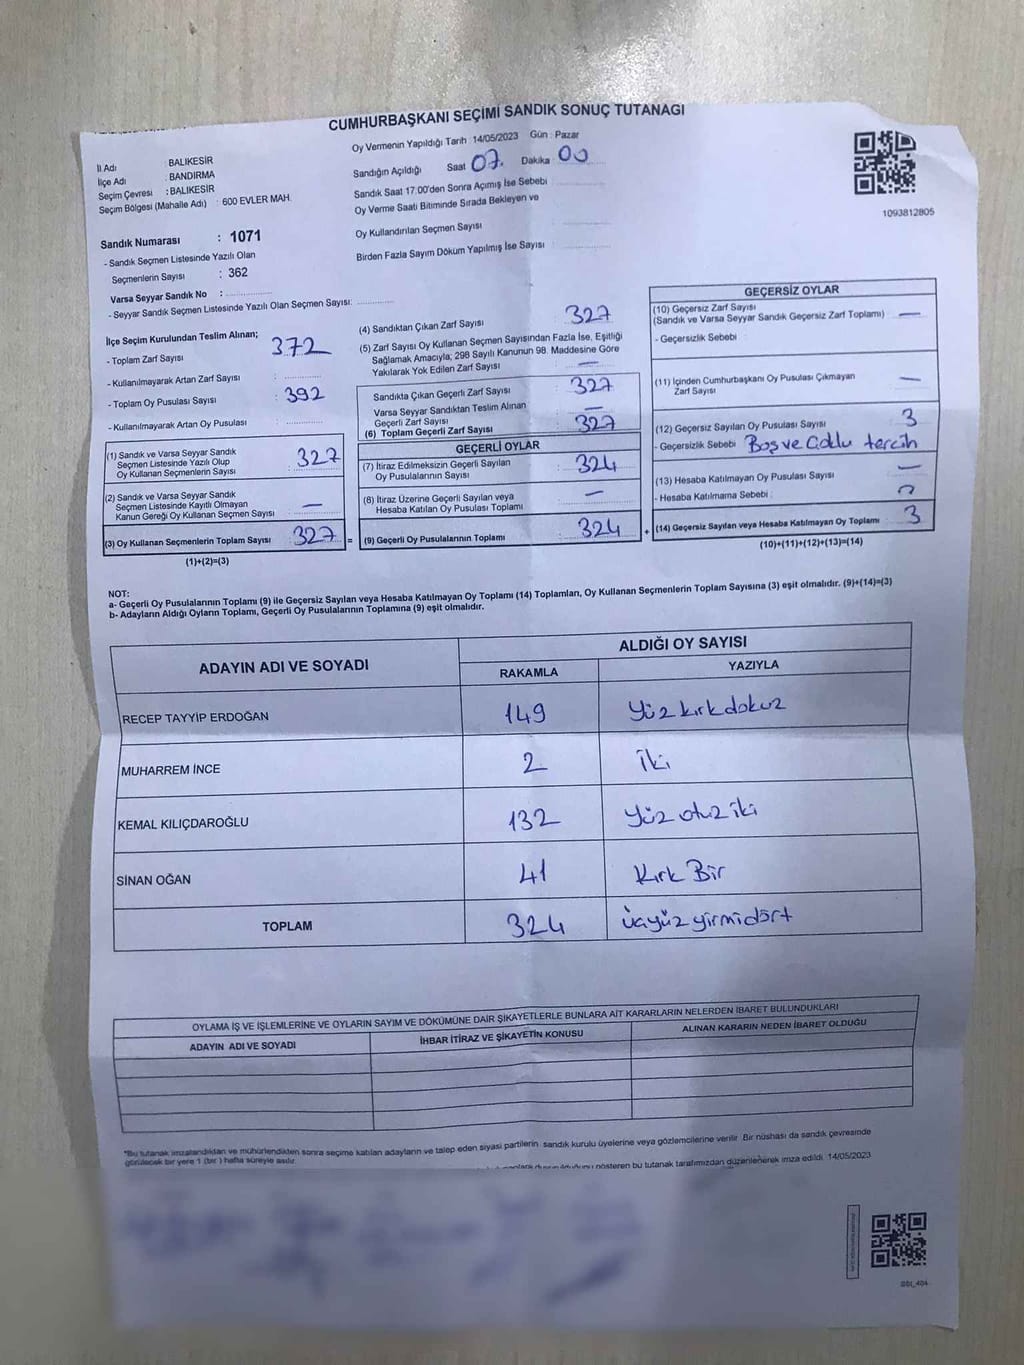 CUMHURBAŞKANI SEÇİMİ SANDIK SONUÇ TUTANAĞI
İl Adı : BALIKESİR
İlçe Adı : BANDIRMA
Seçim Çevresi : BALIKESİR
Seçim Bölgesi (Mahalle Adı) : 600 EVLER MAH.
Oy Vermenin Yapıldığı Tarih : 14/05/2023 Gün : Pazar
Sandığın Açıldığı Saat 07. Dakika : 00
Sandık Saat 17:00'den Sonra Açımış İse Sebebi
Oy Verme Saati Bitiminde Sırada Bekleyen ve
Oy Kullandırılan Seçmen Sayısı
Birden Fazla Sayım Döküm Yapılmış İse Sayısı
1093812805
Sandık Numarası : 1071
- Sandık Seçmen Listesinde Yazılı Olan
Seçmenlerin Sayısı : 362
Varsa Seyyar Sandık No :
- Seyyar Sandık Seçmen Listesinde Yazılı Olan Seçmen Sayısı:
İlçe Seçim Kurulundan Teslim Alınan;
- Toplam Zarf Sayısı : 372
- Kullanılmayarak Artan Zarf Sayısı :
- Toplam Oy Pusulası Sayısı : 392
- Kullanılmayarak Artan Oy Pusulası :
(1) Sandık ve Varsa Seyyar Sandık
Seçmen Listesinde Yazılı Olup
Oy Kullanan Seçmenlerin Sayısı : 327
(2) Sandık ve Varsa Seyyar Sandık
Seçmen Listesinde Kayıtlı Olmayan
Kanun Gereği Oy Kullanan Seçmen Sayısı : —
(3) Oy Kullanan Seçmenlerin Toplam Sayısı : 327 =
(1)+(2)=(3)
(4) Sandıktan Çıkan Zarf Sayısı : 327
(5) Zarf Sayısı Oy Kullanan Seçmen Sayısından Fazla İse, Eşitliği
Sağlamak Amacıyla; 298 Sayılı Kanunun 98. Maddesine Göre
Yakılarak Yok Edilen Zarf Sayısı : —
Sandıkta Çıkan Geçerli Zarf Sayısı : 327
Varsa Seyyar Sandıktan Teslim Alınan
Geçerli Zarf Sayısı : —
(6) Toplam Geçerli Zarf Sayısı : 327
GEÇERLİ OYLAR
(7) İtiraz Edilmeksizin Geçerli Sayılan
Oy Pusulalarının Sayısı : 324
(8) İtiraz Üzerine Geçerli Sayılan veya
Hesaba Katılan Oy Pusulası Toplamı : —
(9) Geçerli Oy Pusulalarının Toplamı : 324 +
GEÇERSİZ OYLAR
(10) Geçersiz Zarf Sayısı
(Sandık ve Varsa Seyyar Sandık Geçersiz Zarf Toplamı) : —
- Geçersizlik Sebebi :
(11) İçinden Cumhurbaşkanı Oy Pusulası Çıkmayan
Zarf Sayısı : —
(12) Geçersiz Sayılan Oy Pusulası Sayısı : 3
- Geçersizlik Sebebi : Boş ve Çoklu tercih
(13) Hesaba Katılmayan Oy Pusulası Sayısı : —
- Hesaba Katılmama Sebebi :
(14) Geçersiz Sayılan veya Hesaba Katılmayan Oy Toplamı : 3
(10)+(11)+(12)+(13)=(14)
NOT:
a- Geçerli Oy Pusulalarının Toplamı (9) ile Geçersiz Sayılan veya Hesaba Katılmayan Oy Toplamı (14) Toplamları, Oy Kullanan Seçmenlerin Toplam Sayısına (3) eşit olmalıdır. (9)+(14)=(3)
b- Adayların Aldığı Oyların Toplamı, Geçerli Oy Pusulalarının Toplamına (9) eşit olmalıdır.
ADAYIN ADI VE SOYADI ALDIĞI OY SAYISI
RAKAMLA YAZIYLA
RECEP TAYYİP ERDOĞAN 149 Yüz kırk dokuz
MUHARREM İNCE 2 İki
KEMAL KILIÇDAROĞLU 132 Yüz otuz iki
SİNAN OĞAN 41 Kırk Bir
TOPLAM 324 üçyüz yirmidört
OYLAMA İŞ VE İŞLEMLERİNE VE OYLARIN SAYIM VE DÖKÜMÜNE DAİR ŞİKAYETLERLE BUNLARA AİT KARARLARIN NELERDEN İBARET BULUNDUKLARI
ADAYIN ADI VE SOYADI İHBAR İTİRAZ VE ŞİKAYETİN KONUSU ALINAN KARARIN NEDEN İBARET OLDUĞU
*Bu tutanak imzalandıktan ve mühürlendikten sonra seçime katılan adayların ve talep eden siyasi partilerin sandık kurulu üyelerine veya gözlemcilerine verilir. Bir nüshası da sandık çevresinde
görülecek bir yere 1 (bir ) hafta süreyle asılır.
gösteren bu tutanak tarafımızdan düzenlenerek imza edildi. 14/05/2023